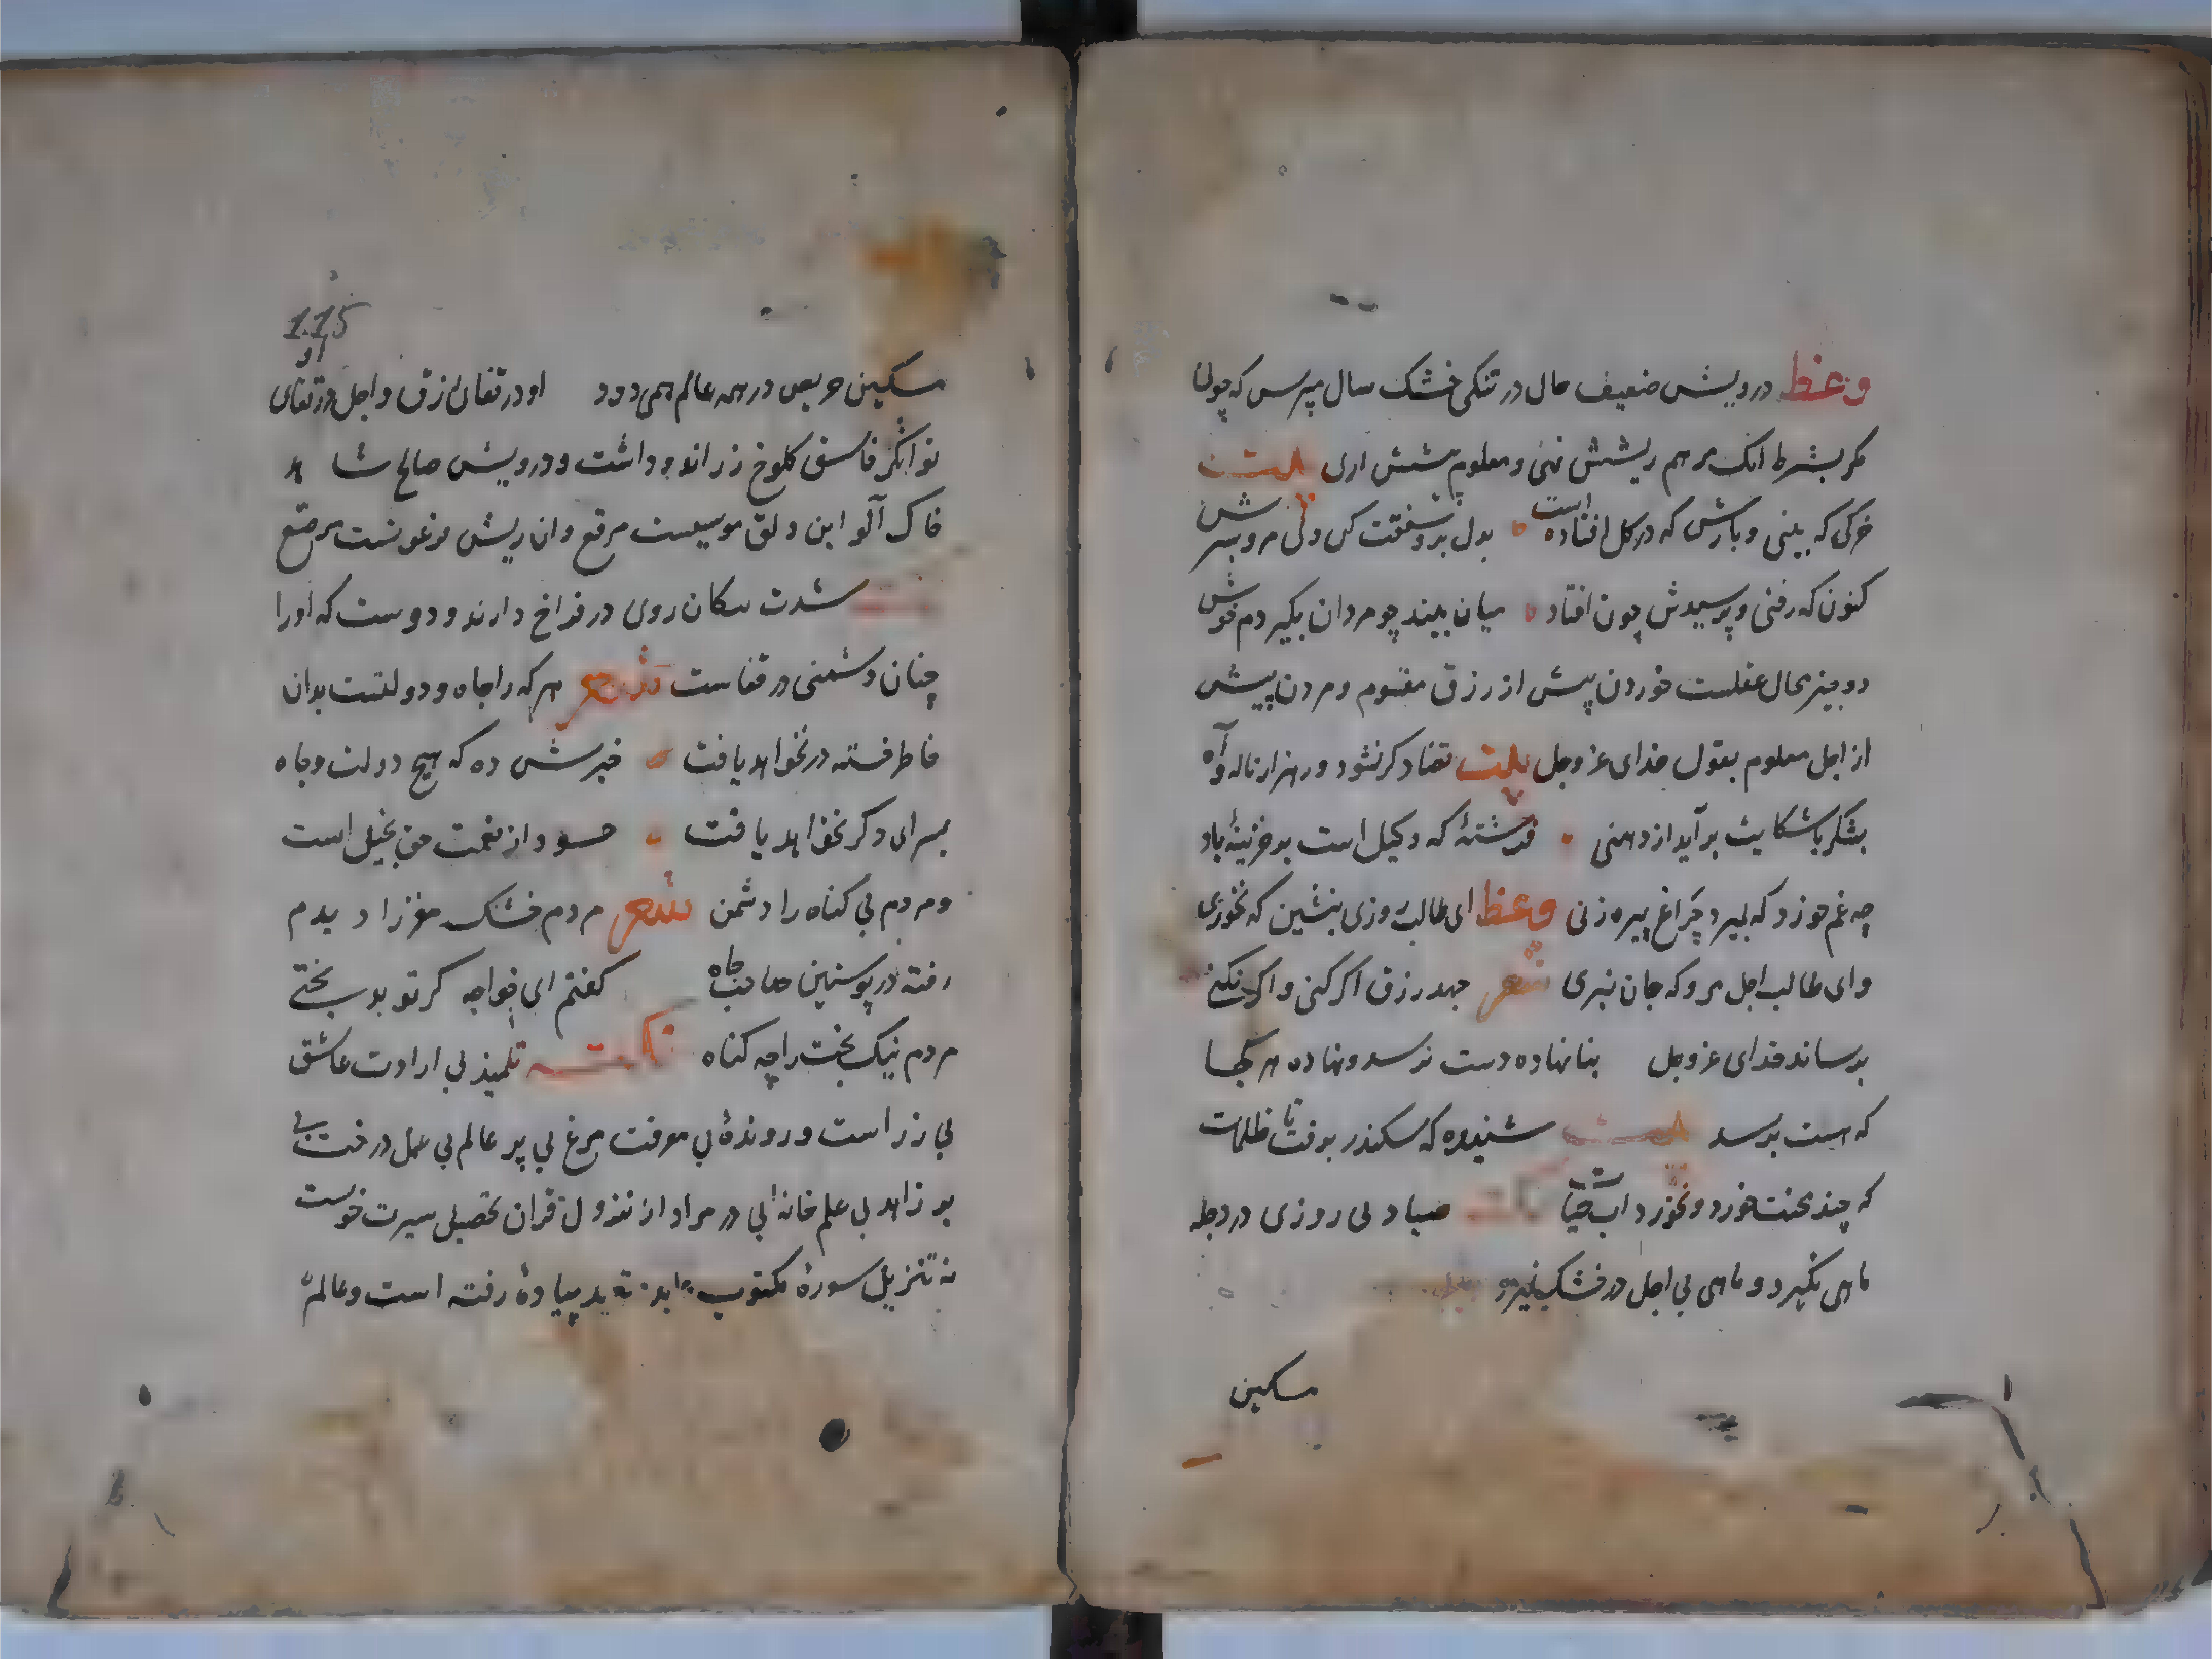 وعظ درویش ضعیف حال در تنکی خشک سال مپرس که چونی
مکر بشرط انک مرهم ریشش نهی و معلوم پیشش اری بیت
خرکی که بینی و بارش که در کل افتاده است بدل برو شفقت کن ولی مرو بسرش
کنون که رفتی و پرسیدش چون افتاد میان ببند چو مردان بکیر دم خرش
دو چیز محال عقلست خوردن پیش از رزق مقسوم و مردن پیش
از اجل معلوم بقول خدای عز وجل بیت قضا دکر نشود ور هزار ناله و آه
بشکر یا شکایت برآید از دهنی فرشتهٔ که وکیل است بر خزینهٔ باد
چه غم خورد که بمیرد چراغ پیره زنی وعظ ای طالب روزی بنشین که بخوری
و ای طالب اجل مرو که جان نبری شعر جهد رزق ار کنی و اکر نکنی
برساند خدای عز وجل بنا نهاده دست نرسد و نهاده هر کجا
که هست برسد بیت شنیدهٔ که سکندر برفت تا ظلمات
که چند محنت خورد و نخورد اب حیات نکته صیاد بی روزی در دجله
ماهی نکیرد و ماهی بی اجل در خشک نمیرد
مسکین
115
مسکین حریص در همه عالم همی دود او در قفای رزق و اجل در قفای او
توانکر فاسق کلوخ زر اندود داشت و درویش صالح شاهد
خاک آلود این دلق موسیست مرقع و ان ریش فرعونست مرصع
شدت نیکان روی در فراخ دارند و دوست که اورا
چنان دشمنی در قفاست شعر هر که را جاه و دولتست بدان
خاطر خسته در نخواهد یافت خبرش ده که هیچ دولت و جاه
بسرای دکر نخواهد یافت حسود از نعمت حق بخیل است
و مردم بی کناه را دشمن شعر مردم خشک مغز را دیدم
رفته در پوستین صاحب جاه کفتم ای خواجه کر تو بدبختی
مردم نیک بخت را چه کناه نکته تلمیذ بی ارادت عاشق
بی زر است و روندهٔ بی معرفت مرغ بی پر عالم بی عمل درخت بی
بر زاهد بی علم خانهٔ بی در مراد از نزول قران تحصیل سیرت خوبست
نه تنزیل سورهٔ مکتوب پیادهٔ رفته است و عالم